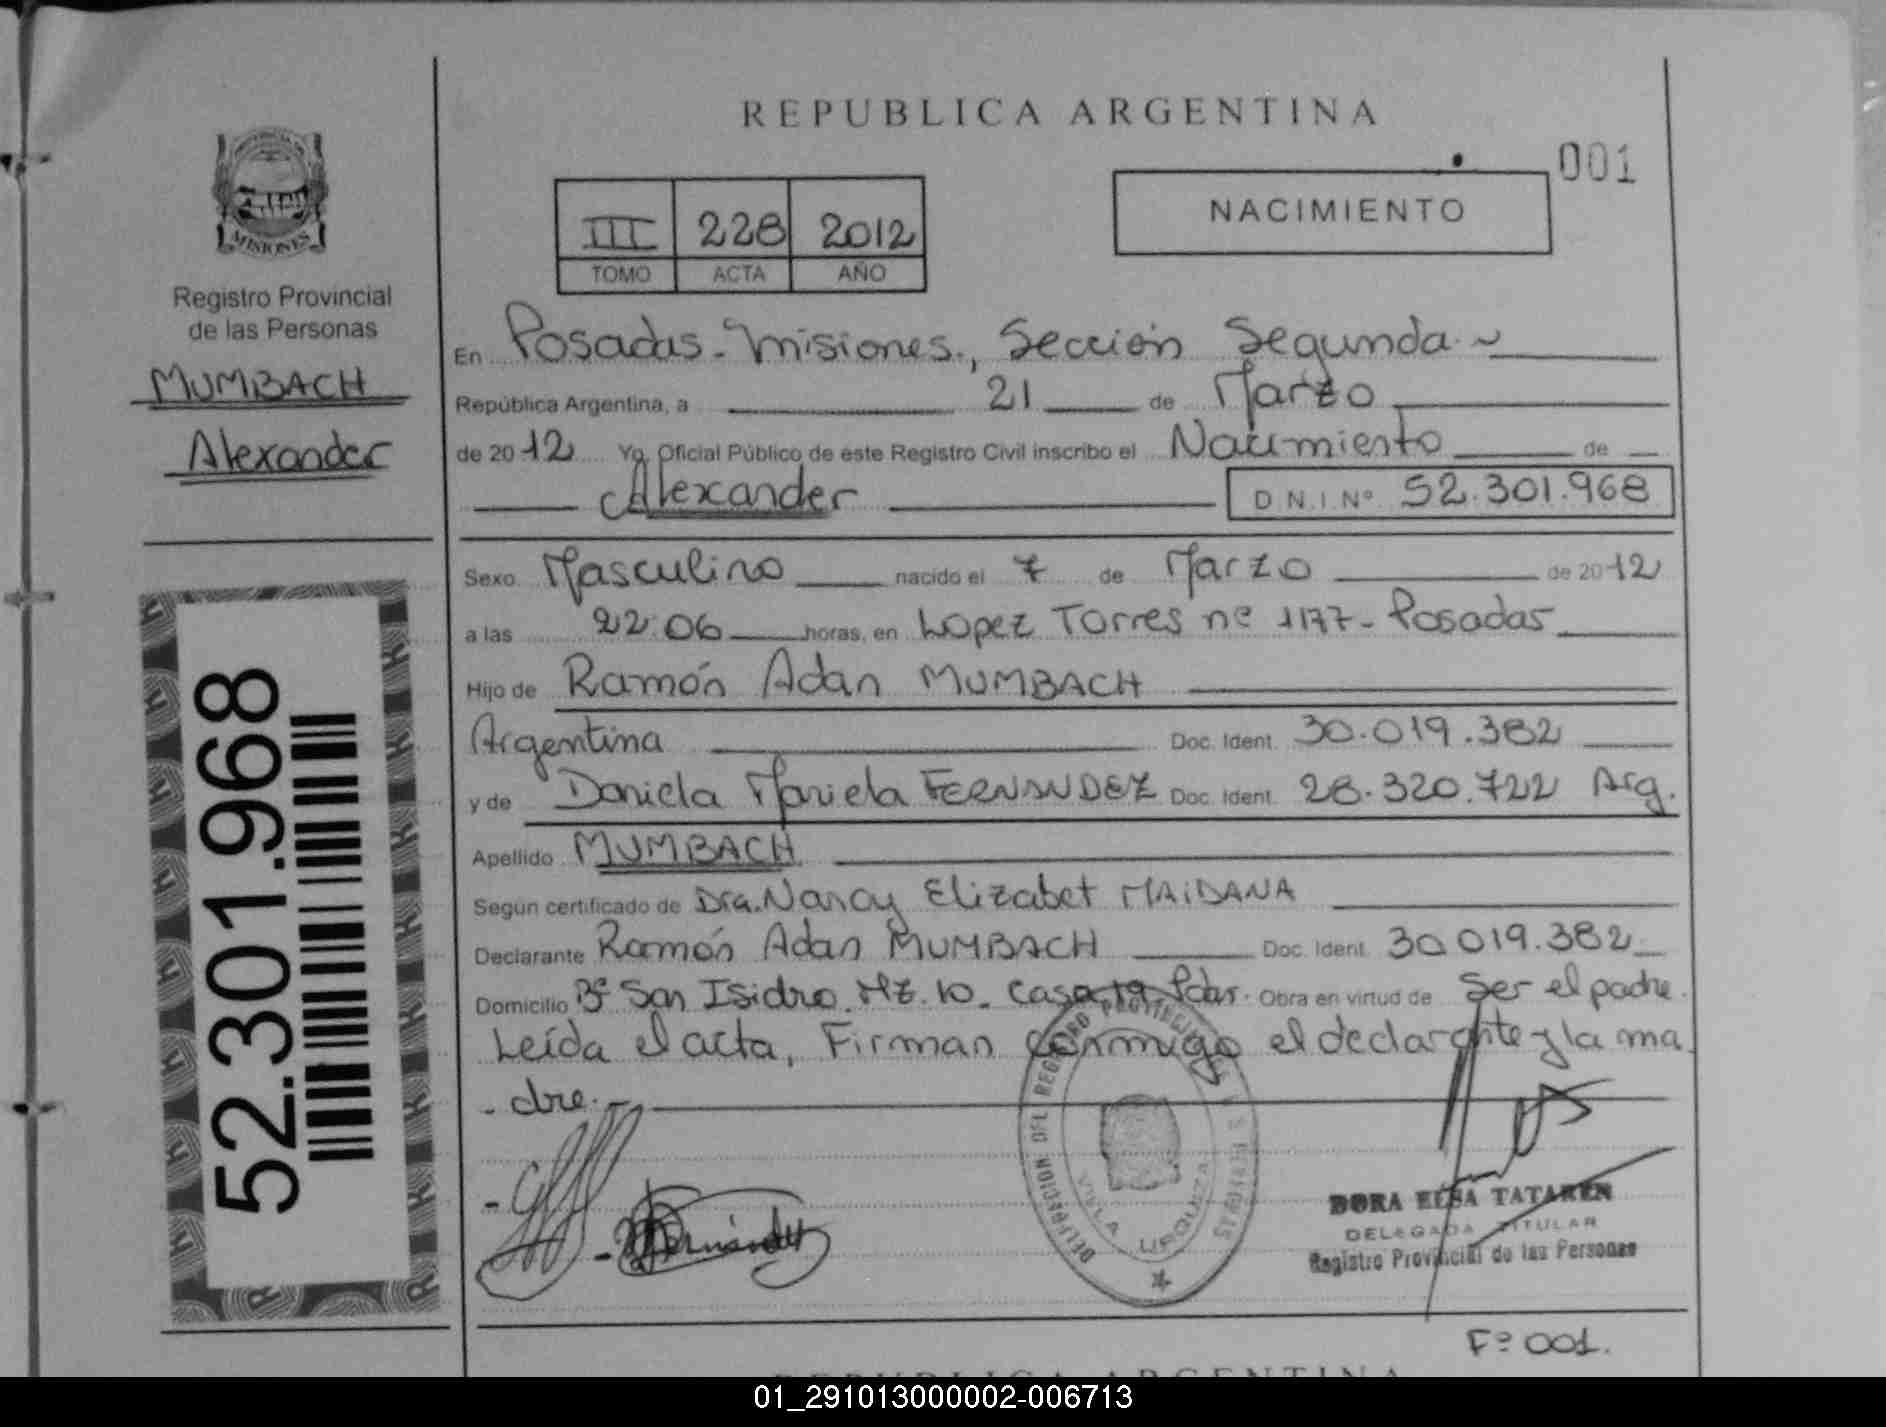 REPUBLICA ARGENTINA
001
III 228 2012
TOMO ACTA AÑO
NACIMIENTO
MISIONES
Registro Provincial
de las Personas
MUMBACH
Alexander
52.301.968
En Posadas - Misiones., Sección Segunda
República Argentina, a 21 de Marzo
de 2012 Yo Oficial Público de este Registro Civil inscribo el Nacimiento de
Alexander D.N.I.Nº 52.301.968
Sexo Masculino nacido el 7 de Marzo de 2012
a las 22:06 horas, en Lopez Torres nº 1177 - Posadas
Hijo de Ramón Adan MUMBACH
Argentina Doc. Ident. 30.019.382
y de Daniela Mariela FERNANDEZ Doc. Ident. 28.320.722 Arg.
Apellido MUMBACH
Según certificado de Dra. Nancy Elizabet MAIDANA
Declarante Ramón Adan MUMBACH Doc. Ident. 30.019.382
Domicilio Bº San Isidro. Mz. 10. Casa 19 Pdas. Obra en virtud de Ser el padre.
Leída el acta, Firman conmigo el declarante y la ma
- dre. -
DELEGACION DEL REGISTRO PROVINCIAL
VILLA URQUIZA
DORA ELSA TATAREN
DELEGADA TITULAR
Registro Provincial de las Personas
Fº 001.
REPUBLICA ARGENTINA
01_291013000002-006713